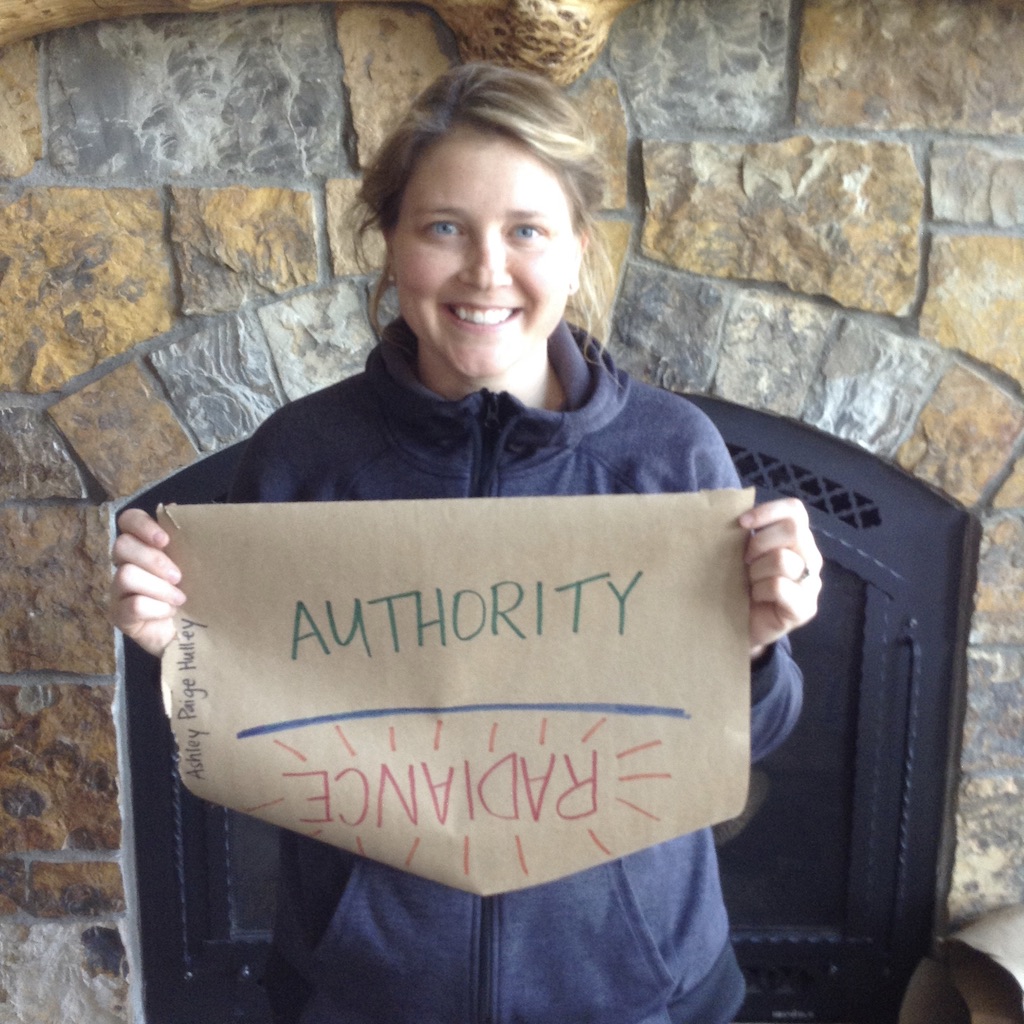 AUTHORITY
RADIANCE
Ashley Paige Hulley